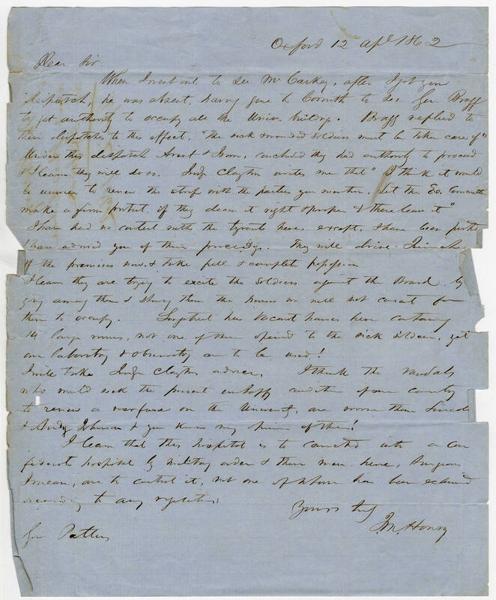 Oxford 12 Apl 1862
Dear Sir
When I went out to see McCaskey, after I got your
dispatch he was absent, having gone to Corinth to see Gen Bragg
to get authority to occupy all the Univ buildings. Bragg replied to
their dispatches to this effect. "The sick & wounded soldiers must be take care of"
Under this dispatch Arent & Isom, concluded they had authority to proceed
& I learn they will do so. Judge Clayton writes me that "I think it would
be unwise to renew the strife with the parties you mention. Let the Ex. Committee
make a firm protest if they deem it right & proper & there leave it"
I have had no contact with the tyrants here except, I have been
I have advised you of their proceedings. They will drive
of the premises now, & take full & complete possession
I learn they are trying to excite the soldiers against the Board by
going among them & showing them the houses we will not consent for
them to occupy. has vacant houses here containing
14 large rooms, not one of them opened to the sick soldiers, yet
our Laboratory & observatory are to be used!
I will take Judge Clayton's advice. I think the vandals
who would seek the present unhappy condition of our country
to renew a warfare on the University, are worse than Lincoln
& Andy Johnson & you know my opinion of them!
I learn that this hospital is to be connected with a con
federate hospital by military order & these men here, Surgeons
I mean, are to control it, not one of whom has been examined
according to army regulations.
Yours truly
J. M. Howry
Gen Patton